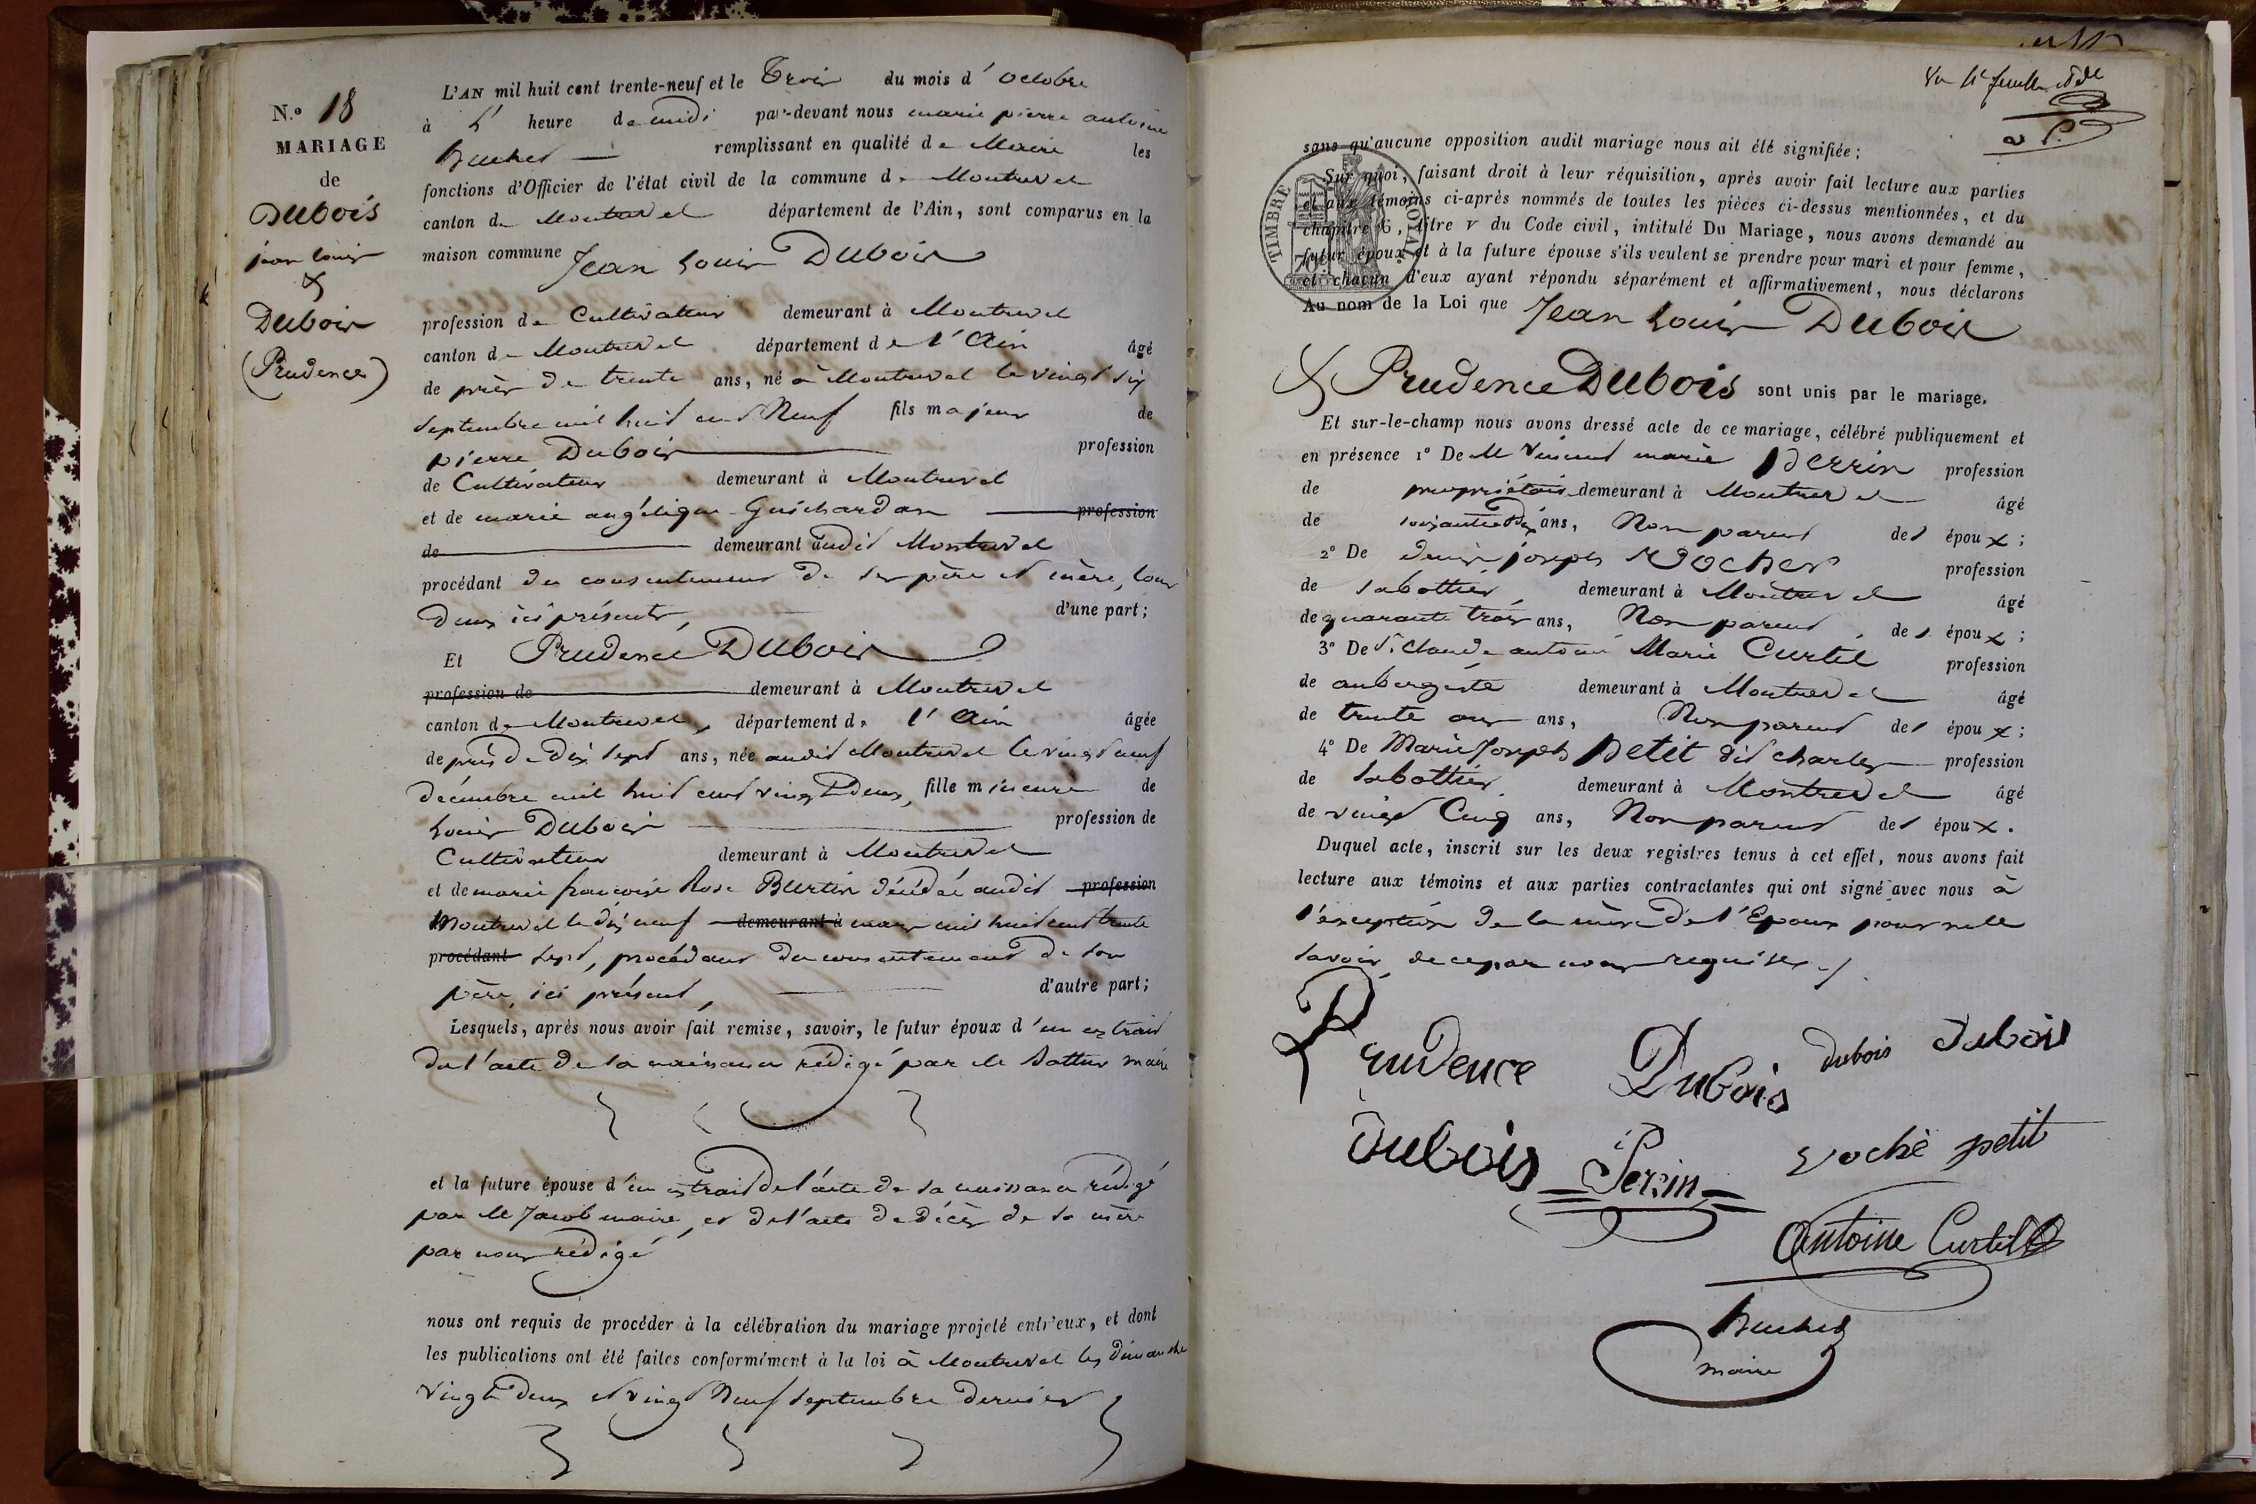 N.º 18
MARIAGE
de
Dubois
jean louis
&
Dubois
(Prudence)
L'AN mil huit cent trente-neuf et le Trois du mois d'octobre
à l'heure de midi par-devant nous marie pierre antoine
Buchet remplissant en qualité de Maire les
fonctions d'Officier de l'état civil de la commune de Montrevel
canton de Montrevel département de l'Ain, sont comparus en la
maison commune Jean Louis Dubois
profession de Cultivateur demeurant à Montrevel
canton de Montrevel département de l'Ain âgé
de près de trente ans, né à Montrevel le vingt six
septembre mil huit cent Neuf fils majeur de
pierre Dubois profession
de Cultivateur demeurant à Montrevel
et de marie angélique Guichardan profession
de demeurant audit Montrevel
procédant du consentement de ses père et mère, tous
deux ici présents, d'une part;
Et Prudence Dubois
profession de demeurant à Montrevel
canton de Montrevel, département de l'Ain âgée
de près de dix sept ans, née audit Montrevel le vingt neuf
décembre mil huit cent vingt deux, fille mineure de
Louis Dubois profession de
Cultivateur demeurant à Montrevel
et de marie françoise Rose Burtin décédée audit profession
Montrevel le dix neuf demeurant à mars mil huit cent trente
procédant sept, procédant du consentement de son
père, ici présent, d'autre part;
Lesquels, après nous avoir fait remise, savoir, le futur époux d'un extrait
de l'acte de sa naissance rédigé par M maire
et la future épouse d'un extrait de l'acte de sa naissance rédigé
par M Jacob maire, et de l'acte de décès de sa mère
par nous rédigé
nous ont requis de procéder à la célébration du mariage projeté entr'eux, et dont
les publications ont été faites conformément à la loi à Montrevel les dimanche
vingt deux et vingt Neuf septembre dernier
feuillet
sans qu'aucune opposition audit mariage nous ait été signifiée;
Sur quoi, faisant droit à leur réquisition, après avoir fait lecture aux parties
et aux témoins ci-après nommés de toutes les pièces ci-dessus mentionnées, et du
chapitre 6, titre v du Code civil, intitulé Du Mariage, nous avons demandé au
futur époux et à la future épouse s'ils veulent se prendre pour mari et pour femme,
et chacun d'eux ayant répondu séparément et affirmativement, nous déclarons
Au nom de la Loi que Jean Louis Dubois
TIMBRE ROYAL
& Prudence Dubois sont unis par le mariage.
Et sur-le-champ nous avons dressé acte de ce mariage, célébré publiquement et
en présence 1º De M Vincent marie Perrin profession
de propriétaire demeurant à Montrevel âgé
de soixante Dix ans, Non parent des époux;
2º De denis joseph Rochet profession
de sabottier, demeurant à Montrevel âgé
de quarante trois ans, Non parent des époux;
3º De Sr Claude antoine Marie Curtil profession
de aubergiste demeurant à Montrevel âgé
de trente ans, Non parent des époux;
4º De Marie Joseph Petit dit charles profession
de Sabottier, demeurant à Montrevel âgé
de vingt Cinq ans, Non parent des époux.
Duquel acte, inscrit sur les deux registres tenus à cet effet, nous avons fait
lecture aux témoins et aux parties contractantes qui ont signé avec nous à
l'exception de la mère de l'Epoux pour ne le
savoir, de ce par nous requise
Prudence Dubois dubois dubois
dubois Perrin Roche petit
Antoine Curtil
Buchet
maire